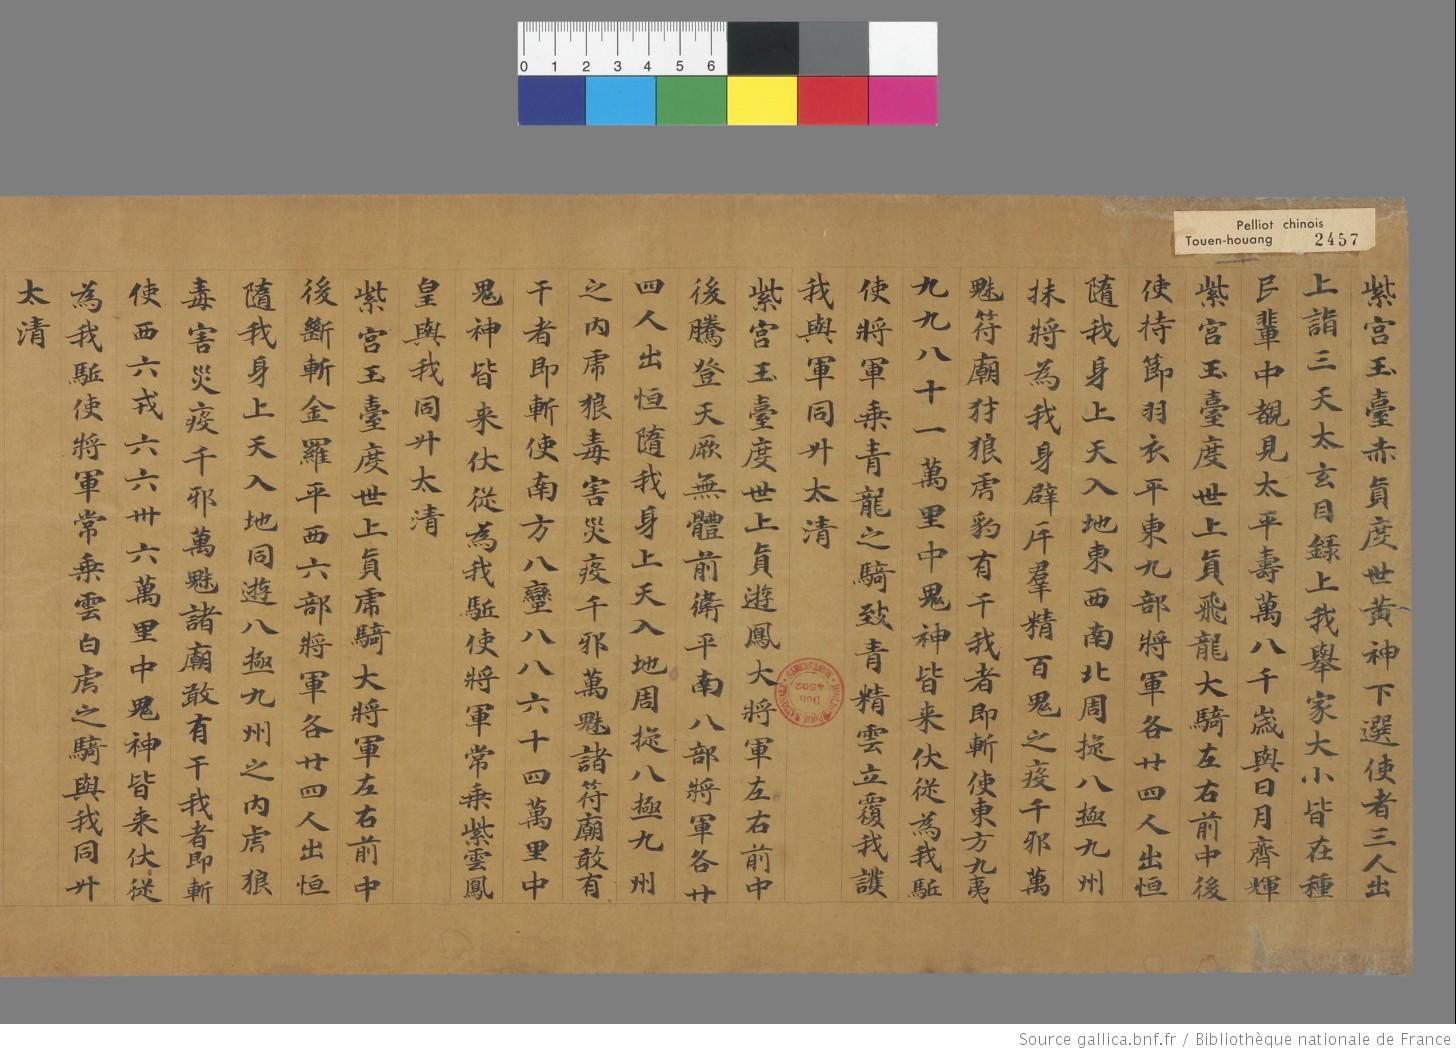 0 1 2 3 4 5 6
Pelliot chinois
Touen-houang 2457
紫宮玉臺赤真度世黃神下選使者三人出
上詣三天太玄目録上我舉家大小皆在種
民輩中覩見太平壽萬八千歲與日月齊輝
紫宮玉臺度世上真飛龍大騎左右前中後
使持節羽衣平東九部將軍各廿四人出恒
隨我身上天入地東西南北周旋八極九州
抹將為我身辟斥羣精百鬼之疫千邪萬
魅符廟犲狼虎豹有干我者即斬使東方九夷
九九八十一萬里中鬼神皆来伏從為我駈
使將軍乗青龍之騎致青精雲立覆我護
我與軍同升太清
紫宮玉臺度世上真遊鳳大將軍左右前中
後騰登天厥無體前衛平南八部將軍各廿
四人出恒隨我身上天入地周旋八極九州
之内虎狼毒害災疫千邪萬魅諸符廟敢有
干者即斬使南方八蠻八八六十四萬里中
鬼神皆来伏從為我駈使將軍常乗紫雲鳳
皇與我同升太清
紫宮玉臺度世上真虎騎大將軍左右前中
後斷斬金羅平西六部將軍各廿四人出恒
隨我身上天入地同遊八極九州之内虎狼
毒害災疫千邪萬魅諸廟敢有干我者即斬
使西六戎六六卅六萬里中鬼神皆来伏從
為我駈使將軍常乗雲白虎之騎與我同升
太清
Don
4502
Source gallica.bnf.fr / Bibliothèque nationale de France